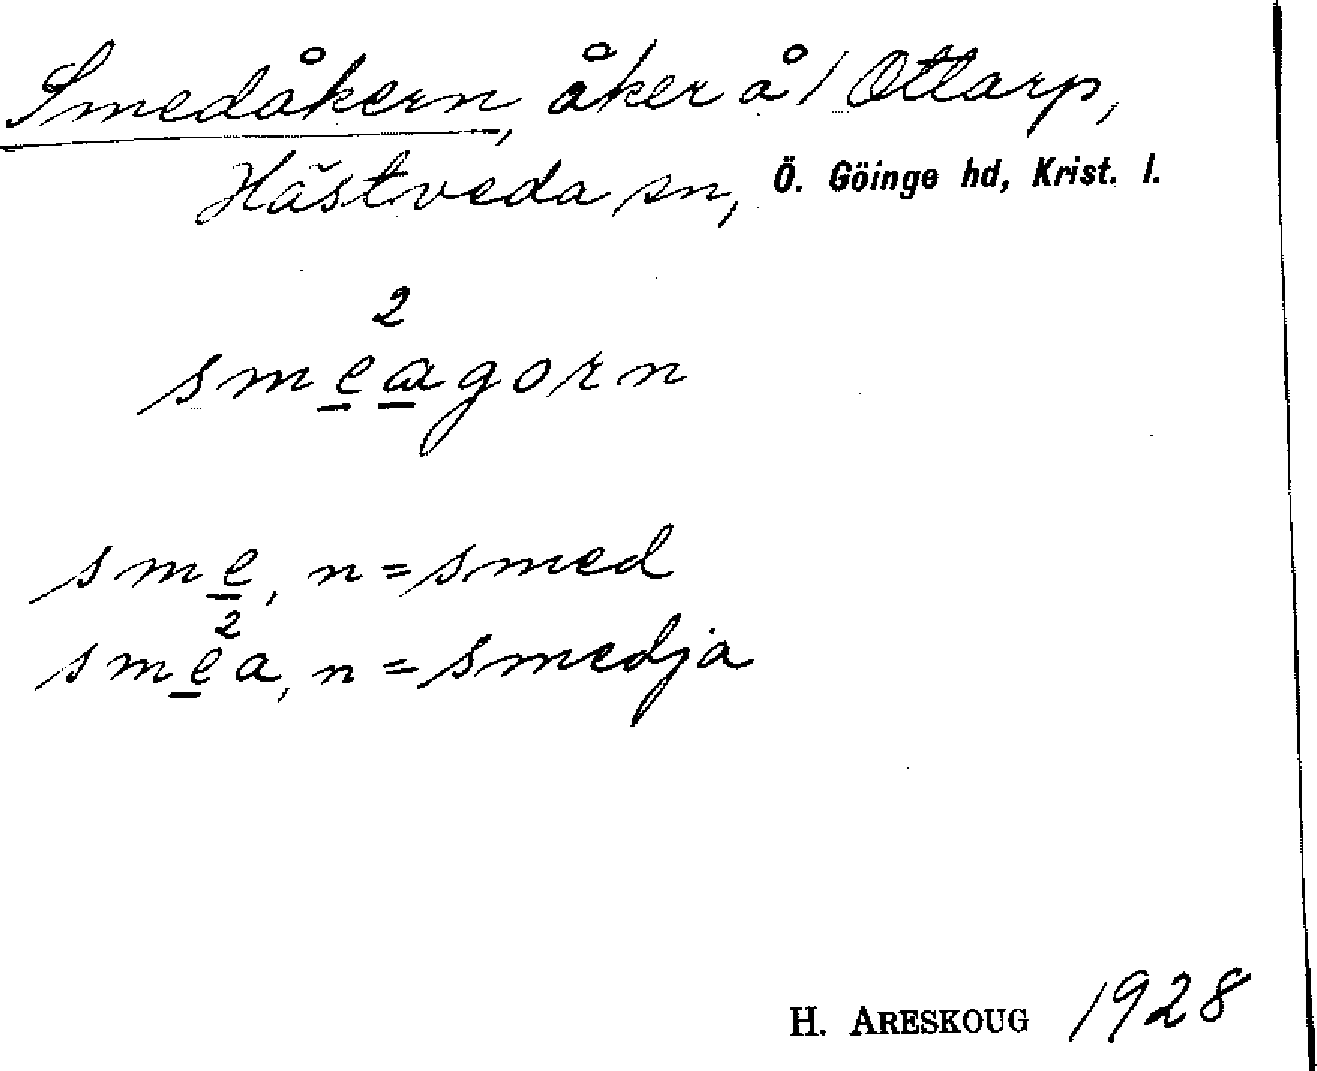 Smedåkern, åker å 1 Ottarp,
Hästveda sn, Ö. Göinge hd, Krist. l.
2
smeagorn
sme, n = smed
2
smea, n = smedja
H. ARESKOUG 1928